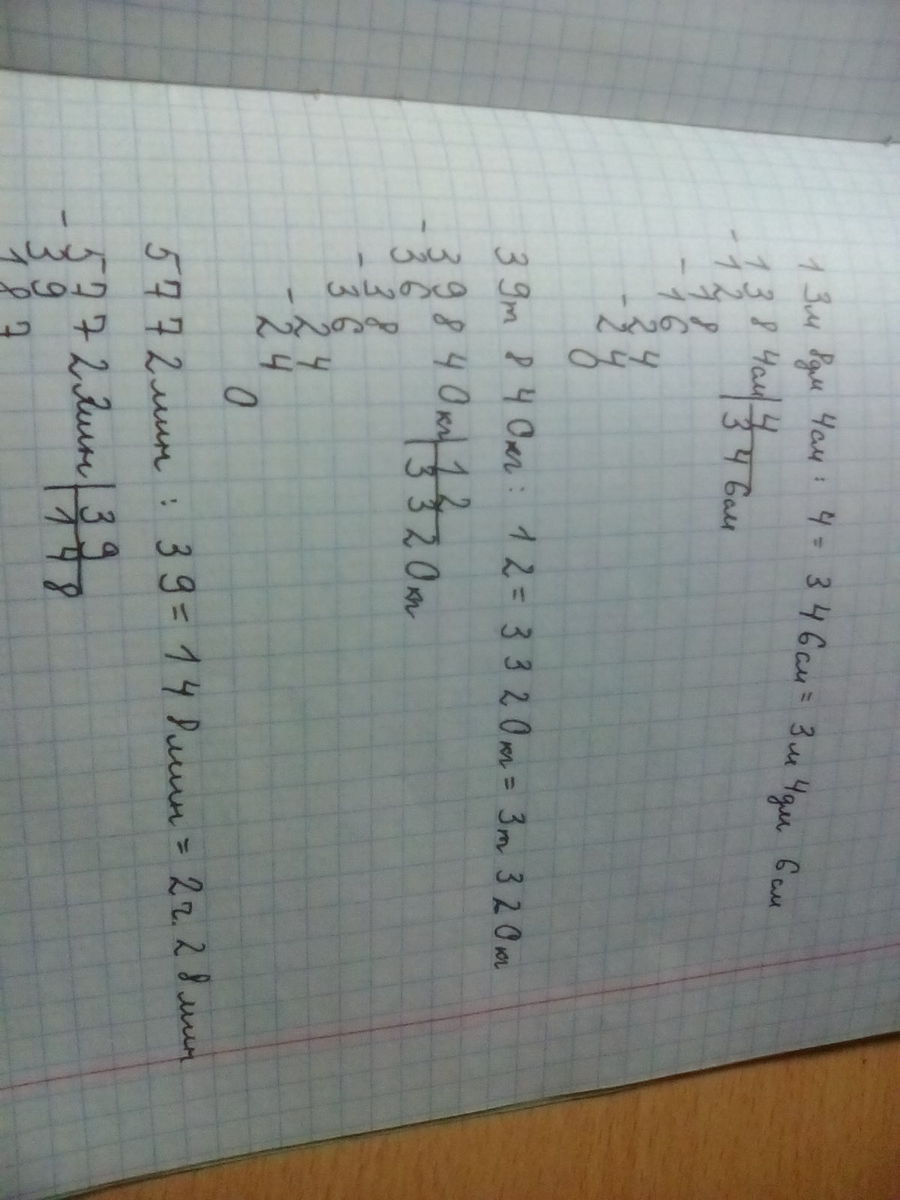 13м 8дм 4см : 4 = 346см = 3м 4дм 6см
- 1384см | 4
12 | 346см
- 18
16
- 24
24
0
39т 840кг : 12 = 3320кг = 3т 320кг
- 39840кг | 12
36 | 3320кг
- 38
36
- 24
24
0
5772мин : 39 = 148мин = 2ч. 28мин
- 5772мин | 39
39 | 148
187